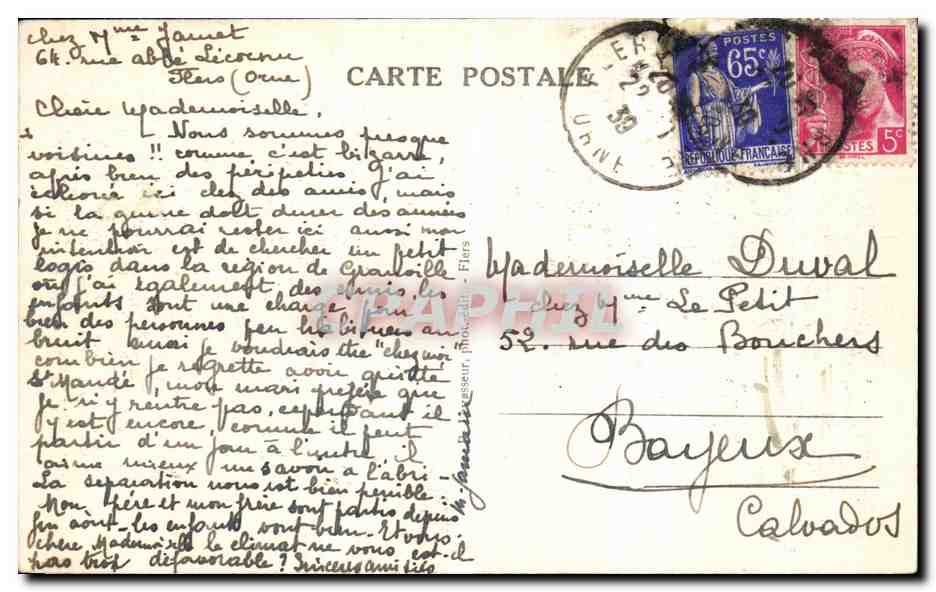 chez Mme Jamet
64. rue abbé Lecornu
Flers (Orne)
CARTE POSTALE
Chère Mademoiselle,
Nous sommes presque
voisines !! comme c'est bizarre,
après bien des péripéties J'ai
échoué ici chez des amis, mais
si la guerre doit durer des années
je ne pourrai rester ici aussi mon
intention est de chercher un petit
logis dans la région de Granville
où j'ai également des amis, les
enfants sont une charge pour
bien des personnes peu habituées au
bruit aussi je voudrais être "chez moi"
combien je regrette avoir quitté
St Mandé, mon mari préfère que
je n'y rentre pas, cependant il
y est encore, comme il peut
partir d'un jour à l'autre il
aime mieux me savoir à l'abri -
La séparation nous est bien pénible.
Mon père et mon frère sont partis depuis
fin août - les enfants vont bien - Et vous
chère Mademoiselle le climat ne vous est-il
pas trop défavorable ? Sincères amitiés
Mademoiselle Duval
chez Mme Le Petit
52. rue des Bouchers
Bayeux
Calvados
phot. édit. - Flers
POSTES
65c
REPUBLIQUE FRANÇAISE
5c
POSTES
22
39
ORNE
CPAPHIL